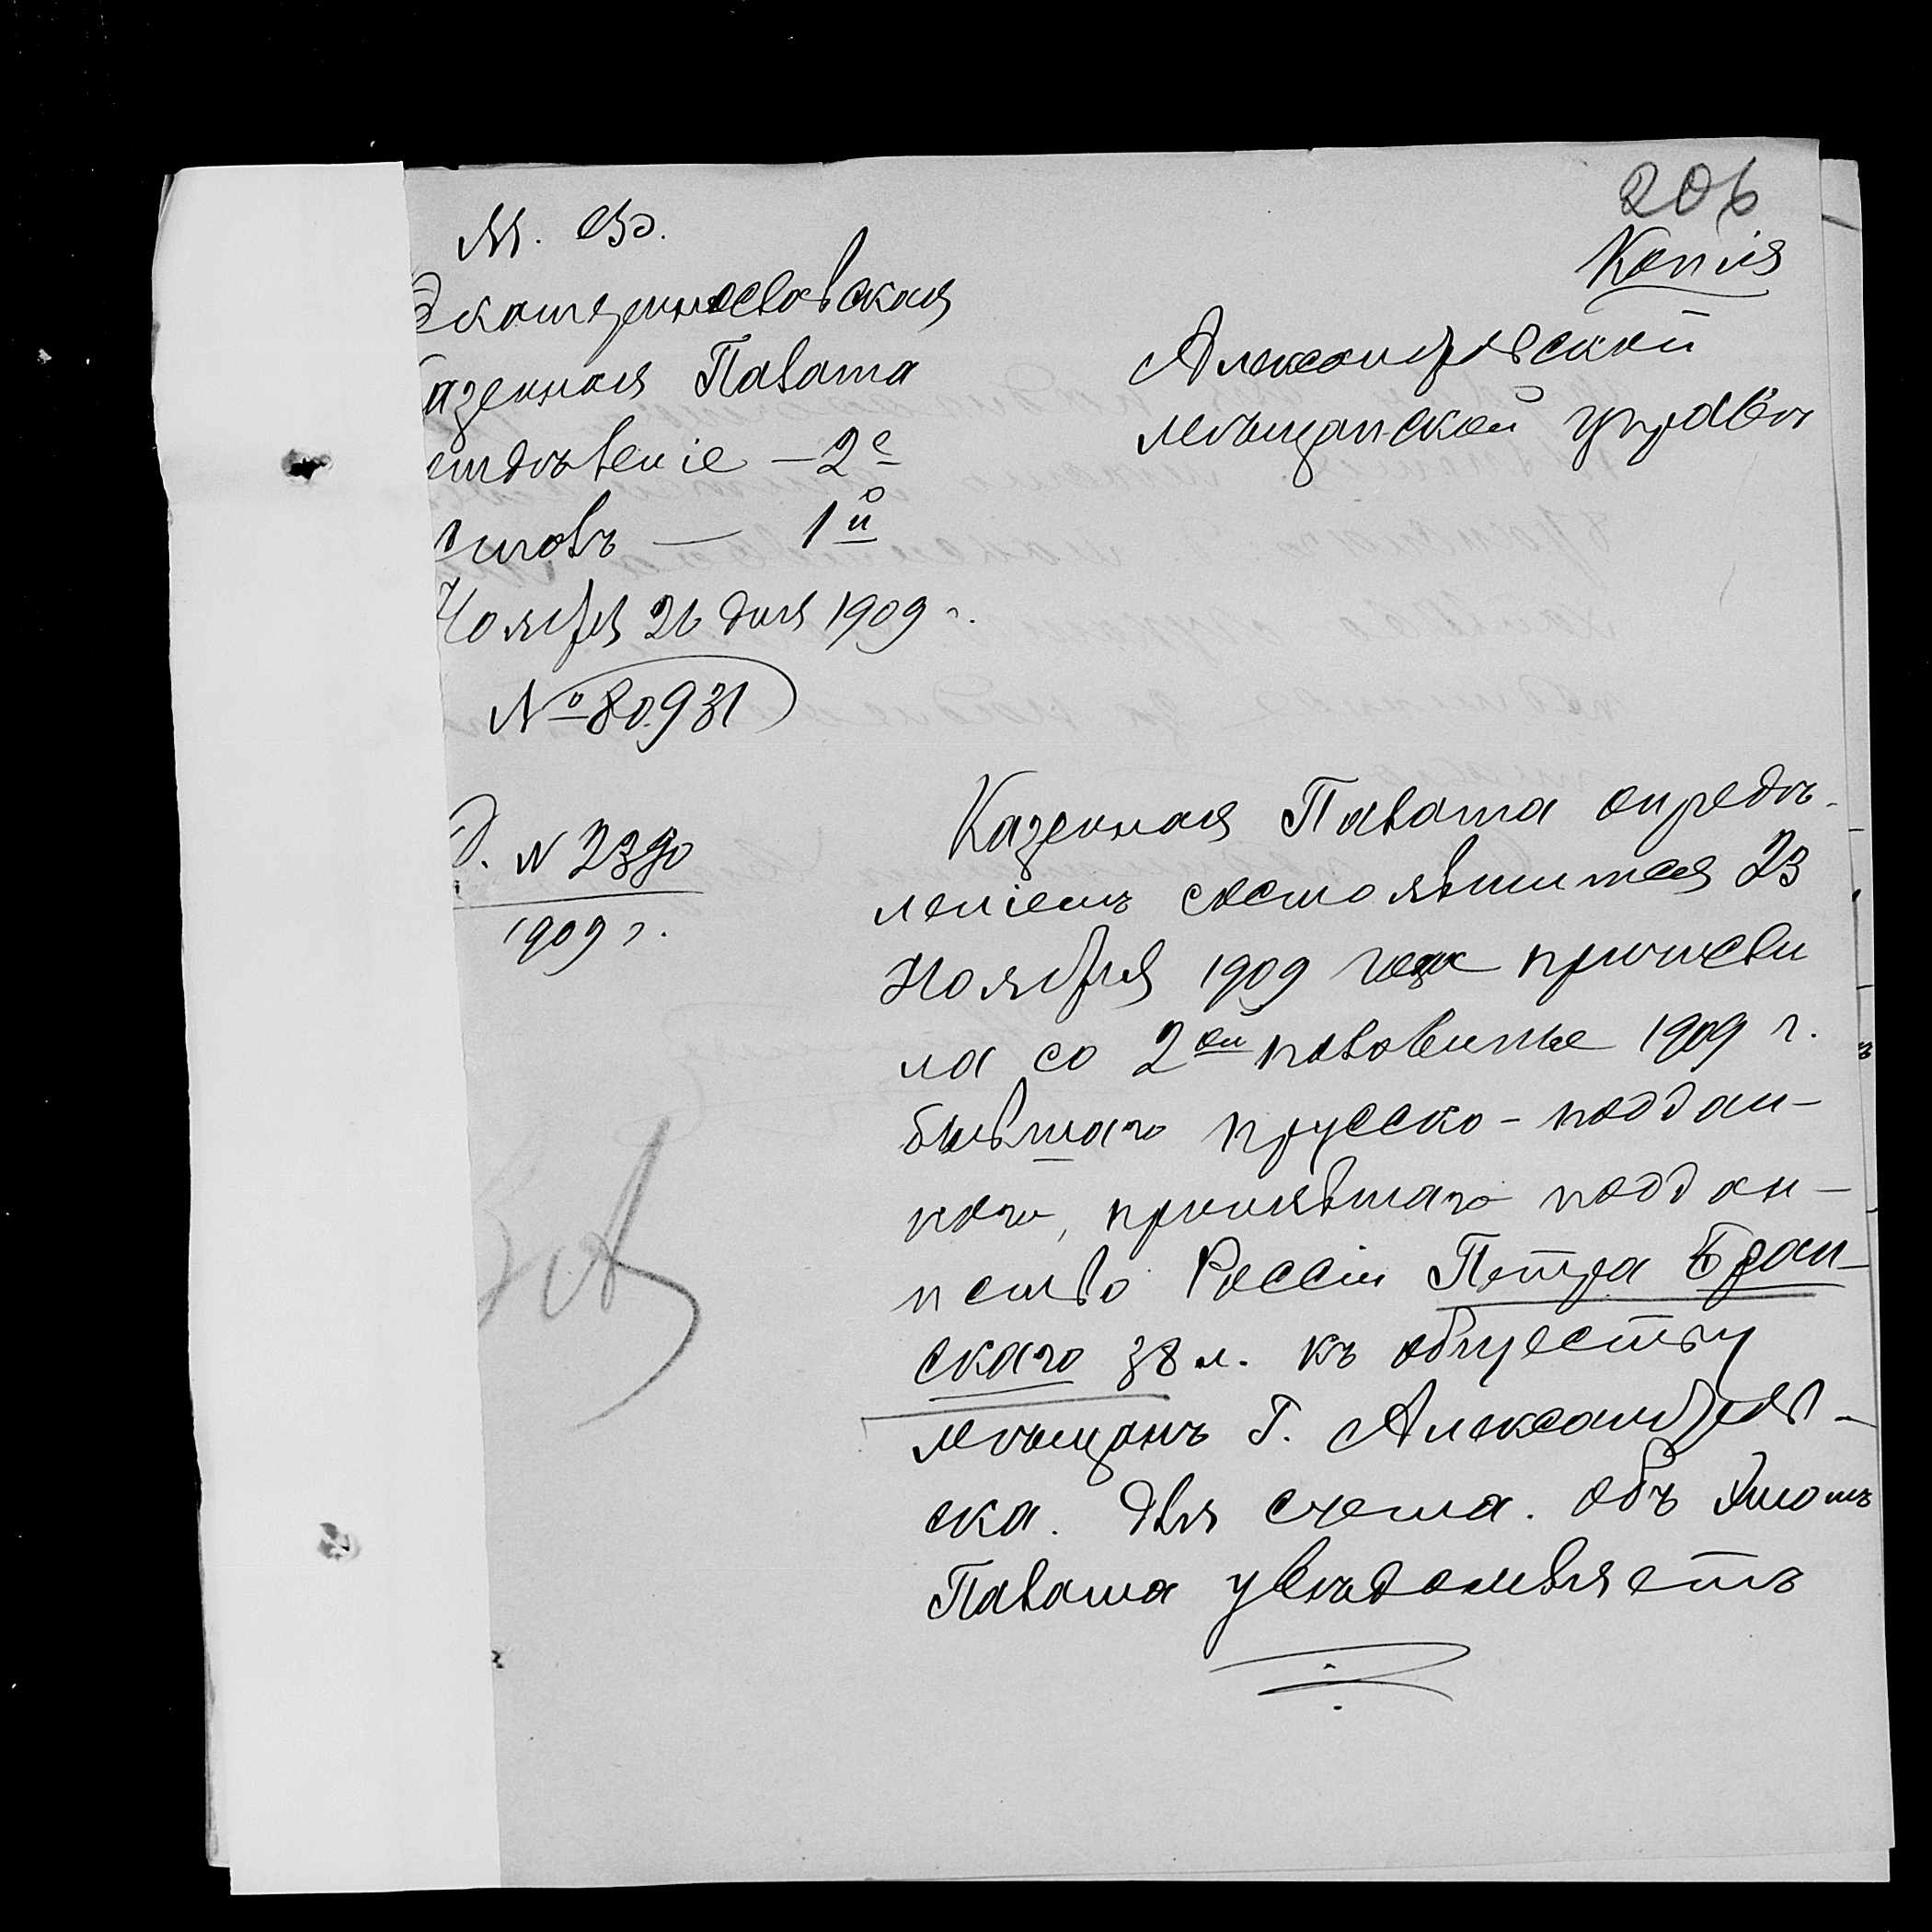 206
Копія
М. Ф.
Екатеринославская
Казенная Палата
отдѣленіе – 2е
столъ — 1й
Ноября 26 дня 1909 г.
№ 80931
Д. N 2390
1909 г.
Александровской
мѣщанской управѣ
Казенная Палата опредѣ-
леніемъ состоявшимся 23
Ноября 1909 года причисли
ла со 2ой половины 1909 г.
бывшаго прусско-поддан-
наго, принявшаго поддан-
нство Россіи Петра Бран-
скаго 38 л. къ обществу
мѣщанъ Г. Александров-
ска. Для счета. Объ этомъ
Палата увѣдомляетъ